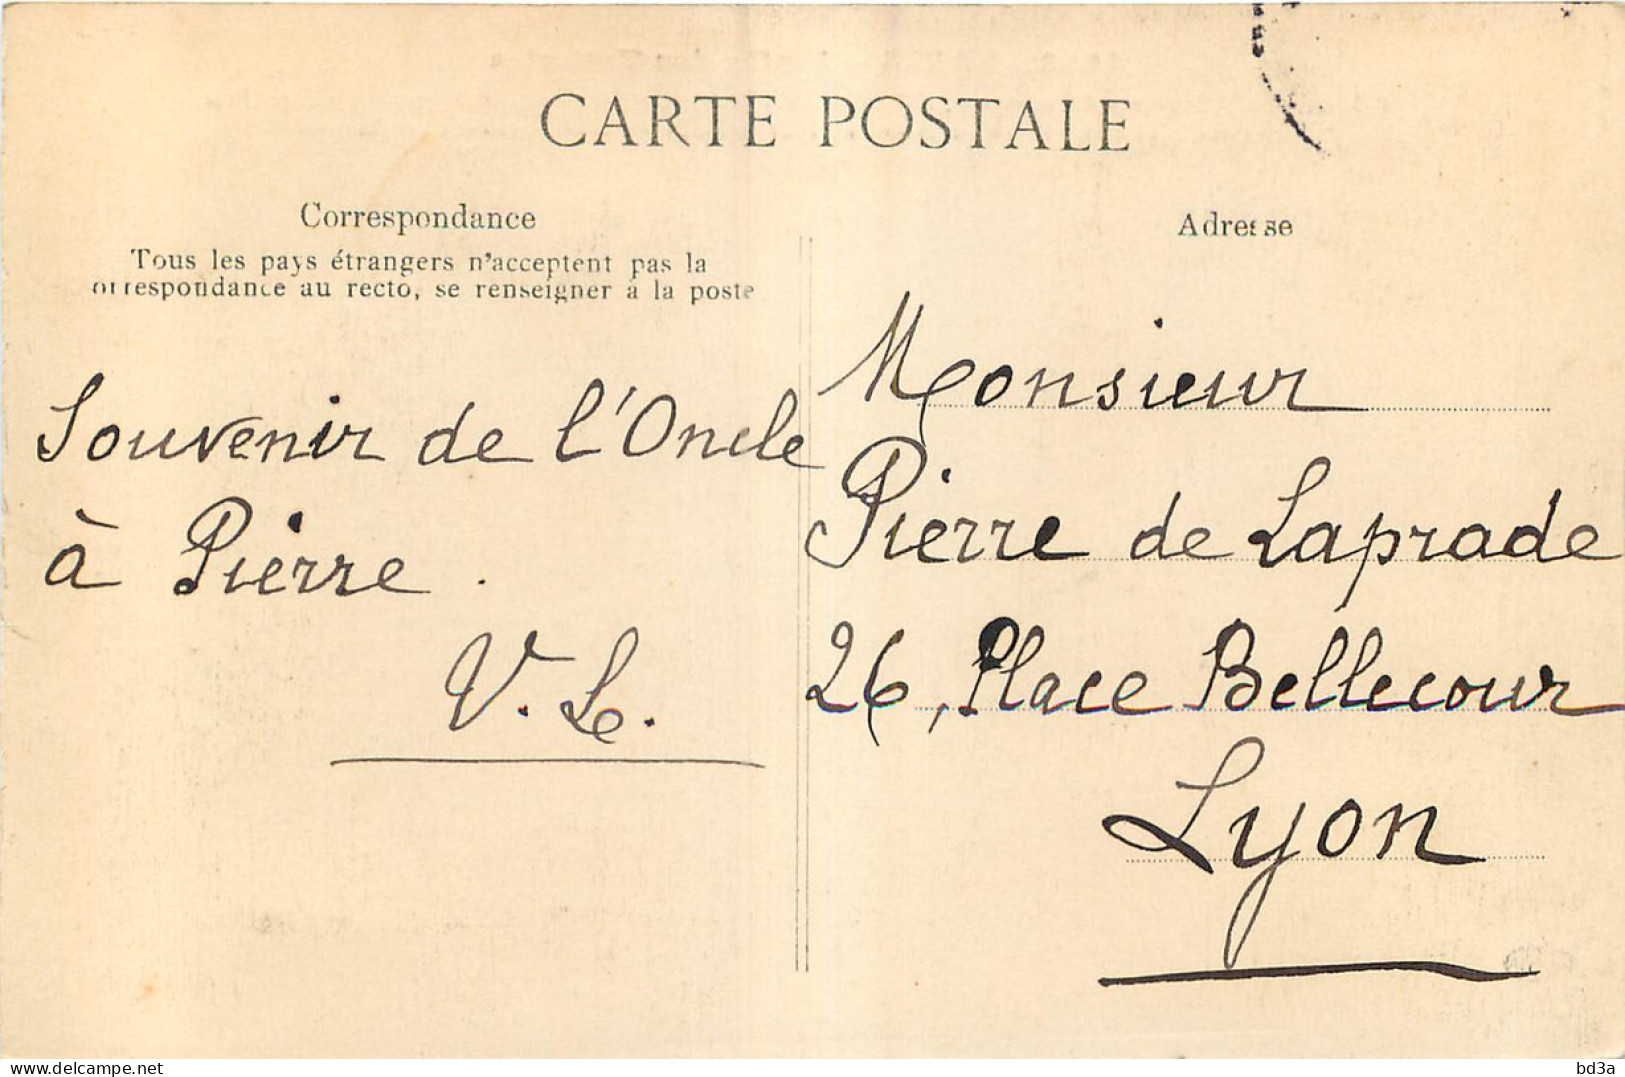 CARTE POSTALE
Correspondance
Tous les pays étrangers n'acceptent pas la
correspondance au recto, se renseigner à la poste
Souvenir de l'Oncle
à Pierre.
V. L.
Adresse
Monsieur
Pierre de Laprade
26, Place Bellecour
Lyon
www.delcampe.net
bd3a